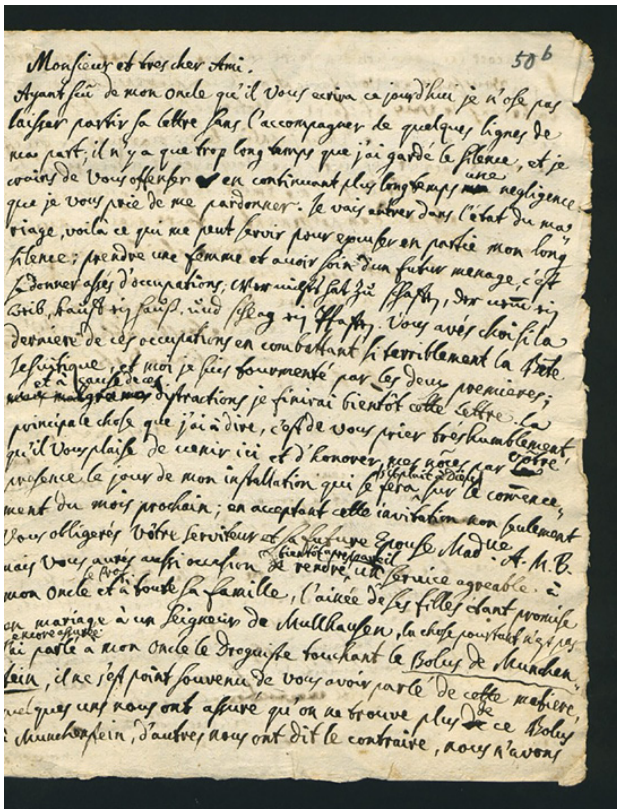 50 b
Monsieur et tres cher Ami.
Ayant sçû de mon oncle qu'il vous ecrira ce jourd'hui je n'ose pas
laisser partir sa lettre sans l'accompagner de quelques lignes de
ma part; il n'y a que trop long temps que j'ai gardé le silence, et je
crains de vous offenser en continuant plus longtemps une negligence
que je vous prie de me pardonner. Je vais entrer dans l'état du ma=
riage, voilà ce qui me peut servir pour epouser en partie mon long
silence; prendre une femme et avoir soin d'un futur menage, c'est
se donner assés d'occupations, Wer will hat zu schaffen, der
Weib, kauff ein Hauß, und schlag ein Pfaffen. Vous avés choisi la
derniere de ces occupations en combattant si terriblement la Bête
Jesuitique, et moi je suis tourmenté par les deux premieres;
et à cause de ces distractions je finirai bientôt cette lettre. La
principale chose que j'ai à dire, c'est de vous prier trèshumblement
qu'il vous plaise de venir ici et d'honorer mes nôces par vôtre
presence le jour de mon installation qui se fera s'il plait à Dieu sur le com̄ence=
ment du mois prochain; en acceptant cette invitation non seulement
vous obligerés vôtre serviteur et sa future Epouse Mad. A. M. B.
mais vous aurés aussi occasion de rendre bientôt apres pareil service agreable à
mon oncle et à toute sa famille, l'ainée de ses filles étant promise
en mariage à un Seigneur de Mullhausen, la chose pourtant n'est pas
encore assurée
j'ai parlé a mon Oncle le Droguiste touchant le Bolus de Munchen=
stein, il ne s'est point souvenu de vous avoir parlé de cette matiere,
quelques uns nous ont assuré qu'on ne trouve plus de ce Bolus
à Munchenstein, d'autres nous ont dit le contraire, nous n'avons